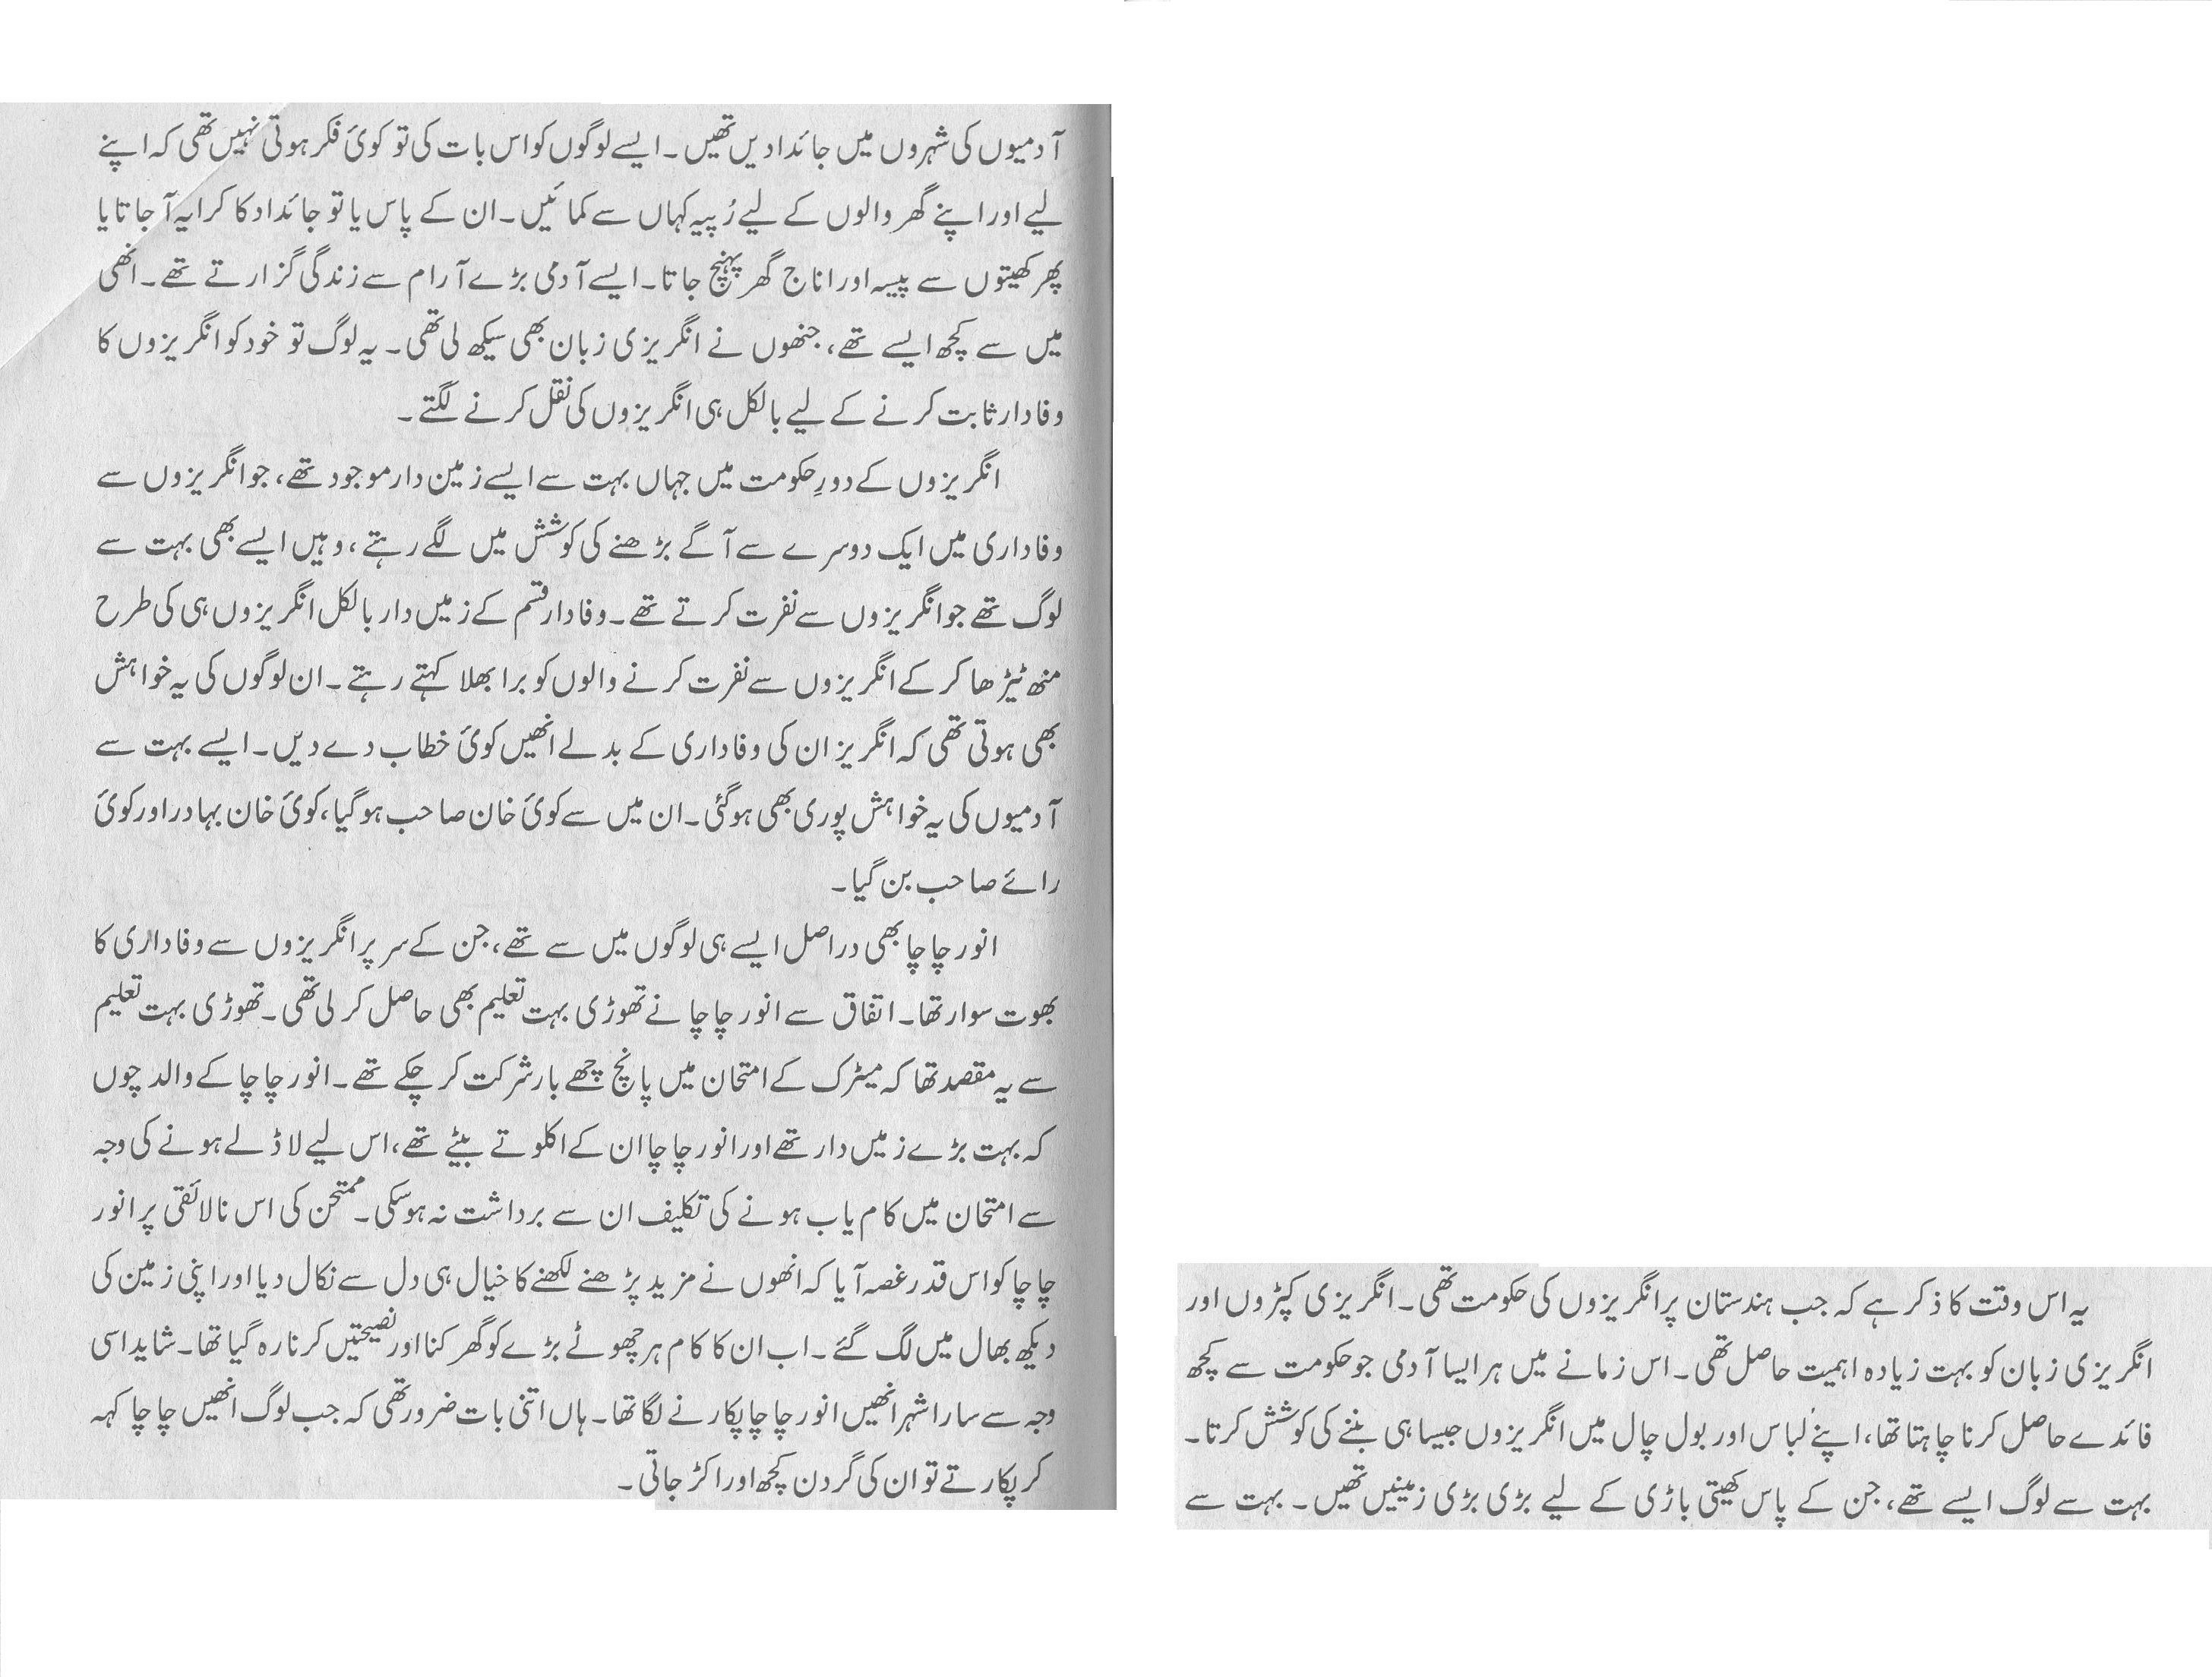 یہ اس وقت کا ذکر ہے کہ جب ہندستان پر انگریزوں کی حکومت تھی۔ انگریزی کپڑوں اور
انگریزی زبان کو بہت زیادہ اہمیت حاصل تھی۔ اس زمانے میں ہر ایسا آدمی جو حکومت سے کچھ
فائدے حاصل کرنا چاہتا تھا، اپنے لباس اور بول چال میں انگریزوں جیسا ہی بننے کی کوشش کرتا۔
بہت سے لوگ ایسے تھے، جن کے پاس کھیتی باڑی کے لیے بڑی بڑی زمینیں تھیں۔ بہت سے
آدمیوں کی شہروں میں جائدادیں تھیں۔ ایسے لوگوں کو اس بات کی تو کوئی فکر ہوتی نہیں تھی کہ اپنے
لیے اور اپنے گھر والوں کے لیے رُپیہ کہاں سے کمائیں۔ ان کے پاس یا تو جائداد کا کرایہ آ جاتا یا
پھر کھیتوں سے پیسہ اور اناج گھر پہنچ جاتا۔ ایسے آدمی بڑے آرام سے زندگی گزارتے تھے۔ انھی
میں سے کچھ ایسے تھے، جنھوں نے انگریزی زبان بھی سیکھ لی تھی۔ یہ لوگ تو خود کو انگریزوں کا
وفادار ثابت کرنے کے لیے بالکل ہی انگریزوں کی نقل کرنے لگتے۔
انگریزوں کے دورِ حکومت میں جہاں بہت سے ایسے زمین دار موجود تھے، جو انگریزوں سے
وفاداری میں ایک دوسرے سے آگے بڑھنے کی کوشش میں لگے رہتے، وہیں ایسے بھی بہت سے
لوگ تھے جو انگریزوں سے نفرت کرتے تھے۔ وفادار قسم کے زمیں دار بالکل انگریزوں ہی کی طرح
منھ ٹیڑھا کر کے انگریزوں سے نفرت کرنے والوں کو برا بھلا کہتے رہتے۔ ان لوگوں کی یہ خواہش
بھی ہوتی تھی کہ انگریز ان کی وفاداری کے بدلے انھیں کوئی خطاب دے دیں۔ ایسے بہت سے
آدمیوں کی یہ خواہش پوری بھی ہوگئی۔ ان میں سے کوئی خان صاحب ہو گیا، کوئی خان بہادر اور کوئی
رائے صاحب بن گیا۔
انور چاچا بھی دراصل ایسے ہی لوگوں میں سے تھے، جن کے سر پر انگریزوں سے وفاداری کا
بھوت سوار تھا۔ اتفاق سے انور چاچا نے تھوڑی بہت تعلیم بھی حاصل کر لی تھی۔ تھوڑی بہت تعلیم
سے یہ مقصد تھا کہ میٹرک کے امتحان میں پانچ چھے بار شرکت کر چکے تھے۔ انور چاچا کے والد چوں
کہ بہت بڑے زمیں دار تھے اور انور چاچا ان کے اکلوتے بیٹے تھے، اس لیے لاڈلے ہونے کی وجہ
سے امتحان میں کام یاب ہونے کی تکلیف ان سے برداشت نہ ہوسکی۔ ممتحن کی اس نالائقی پر انور
چاچا کو اس قدر غصہ آیا کہ انھوں نے مزید پڑھنے لکھنے کا خیال ہی دل سے نکال دیا اور اپنی زمین کی
دیکھ بھال میں لگ گئے۔ اب ان کا کام ہر چھوٹے بڑے کو گھرکنا اور نصیحتیں کرنا رہ گیا تھا۔ شاید اسی
وجہ سے سارا شہر انھیں انور چاچا پکارنے لگا تھا۔ ہاں اتنی بات ضرور تھی کہ جب لوگ انھیں چاچا کہہ
کر پکارتے تو ان کی گردن کچھ اور اکڑ جاتی۔